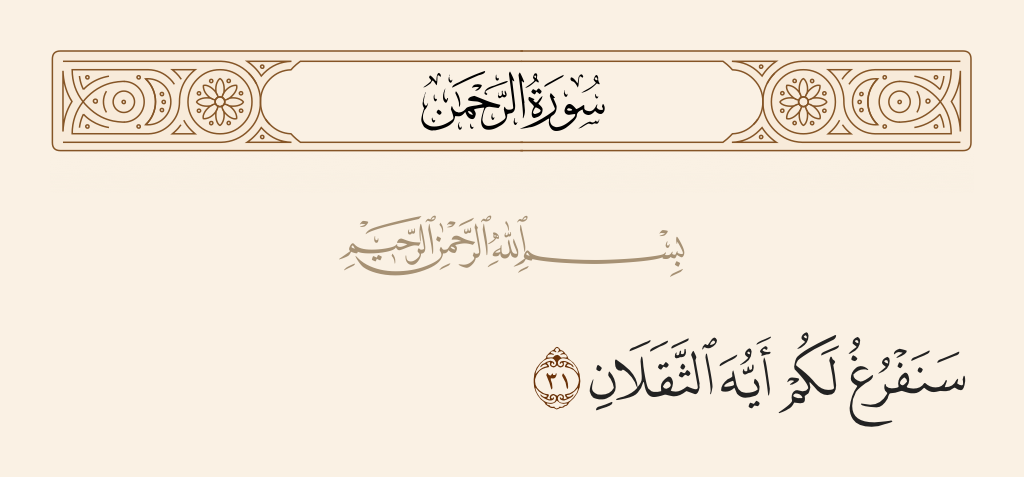 سُورَةُ الرَّحْمَٰن
بِسْمِ ٱللَّهِ ٱلرَّحْمَٰنِ ٱلرَّحِيمِ
سَنَفْرُغُ لَكُمْ أَيُّهَ ٱلثَّقَلَانِ ٣١